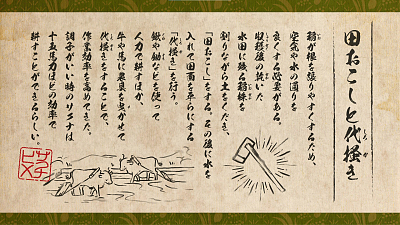 田おこしと代掻き
しろか
稲が根を張りやすくするため、
空気や水の通りを
良くする必要がある。
収穫後の乾いた
水田に残る稲株を
割りながら土をくだき、
「田おこし」をする。その後に水を
入れて田面を平らにする
「代掻き」を行う。
鍬や鋤などを使って
人力で耕すほか、
牛や馬に農具を曳かせて
代掻きをすることで、
作業効率を高めてきた。
調子がいい時のサクナは
十五馬力ほどの効率で
耕すことができるらしい。
サクナヒメ